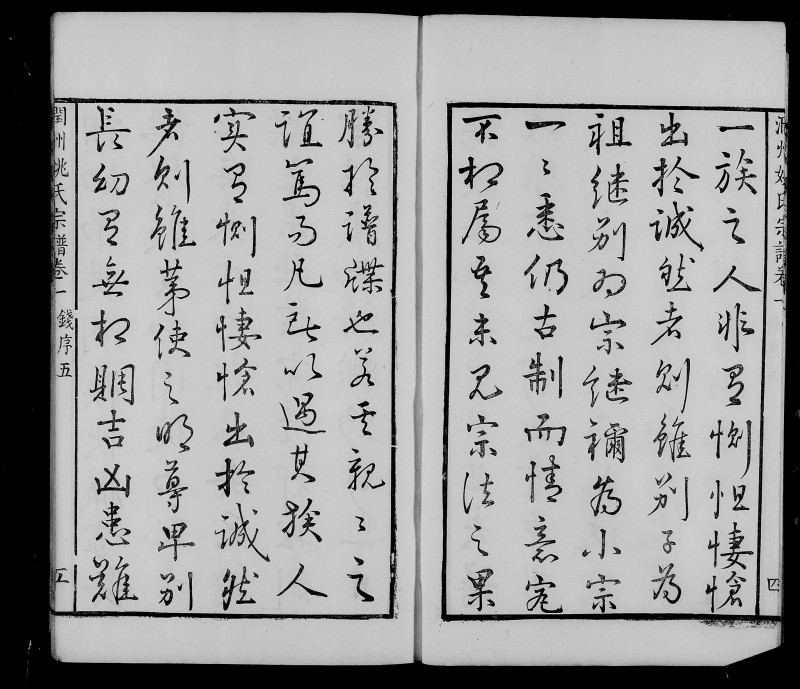 一族之人非有惻怛悽愴
出於誠然者則雖別子爲
祖繼別为宗繼禰為小宗
一〻悉仍古制而情意寃
不相屬吾未見宗法之果
勝於譜牒也若其親〻之
誼篤而凡所以過其族人
實有惻怛悽愴出於誠然
者則雖第使之明尊卑別
長幼有無相賙吉凶患難
潤州姚氏宗譜卷一
錢序五
四